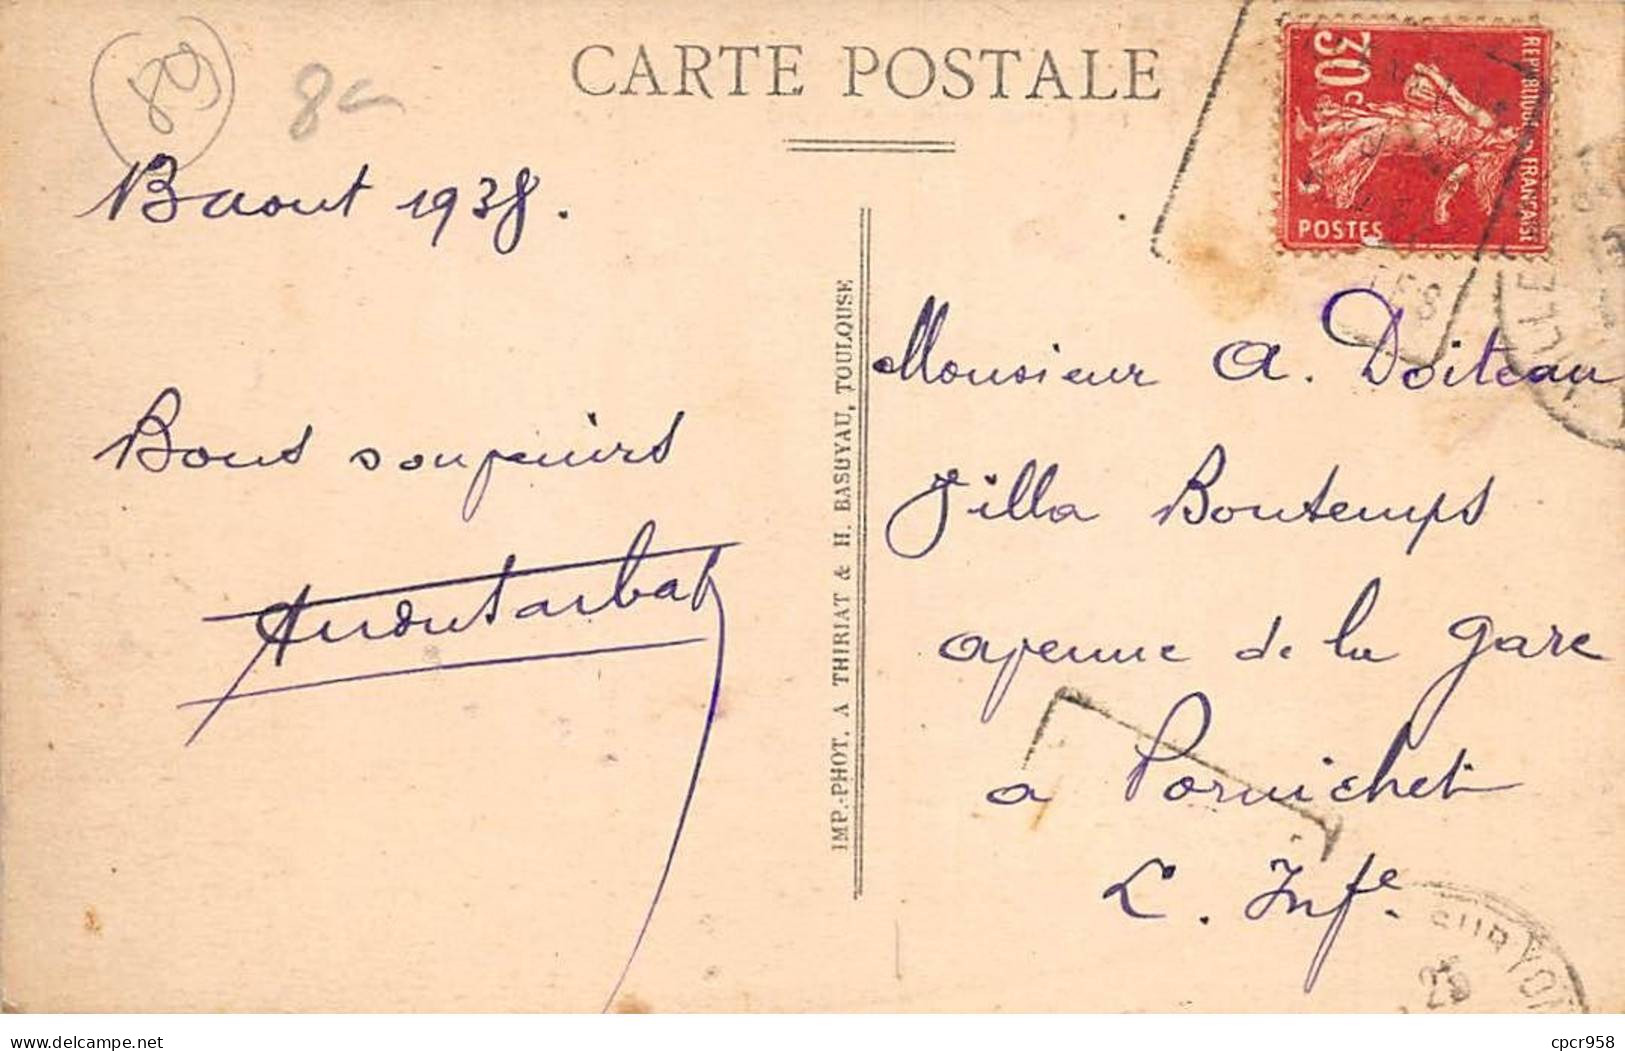 89
8
CARTE POSTALE
30c
REPUBLIQUE FRANÇAISE
POSTES
Baout 1938.
Bons souvenirs
IMP.-PHOT. A THIRIAT & H. BASUYAU, TOULOUSE
Monsieur A. Doiteau
Villa Bontemps
avenue de la gare
a Pornichet
L. Infe.
SUR YON
VILLE
www.delcampe.net
cpcr958